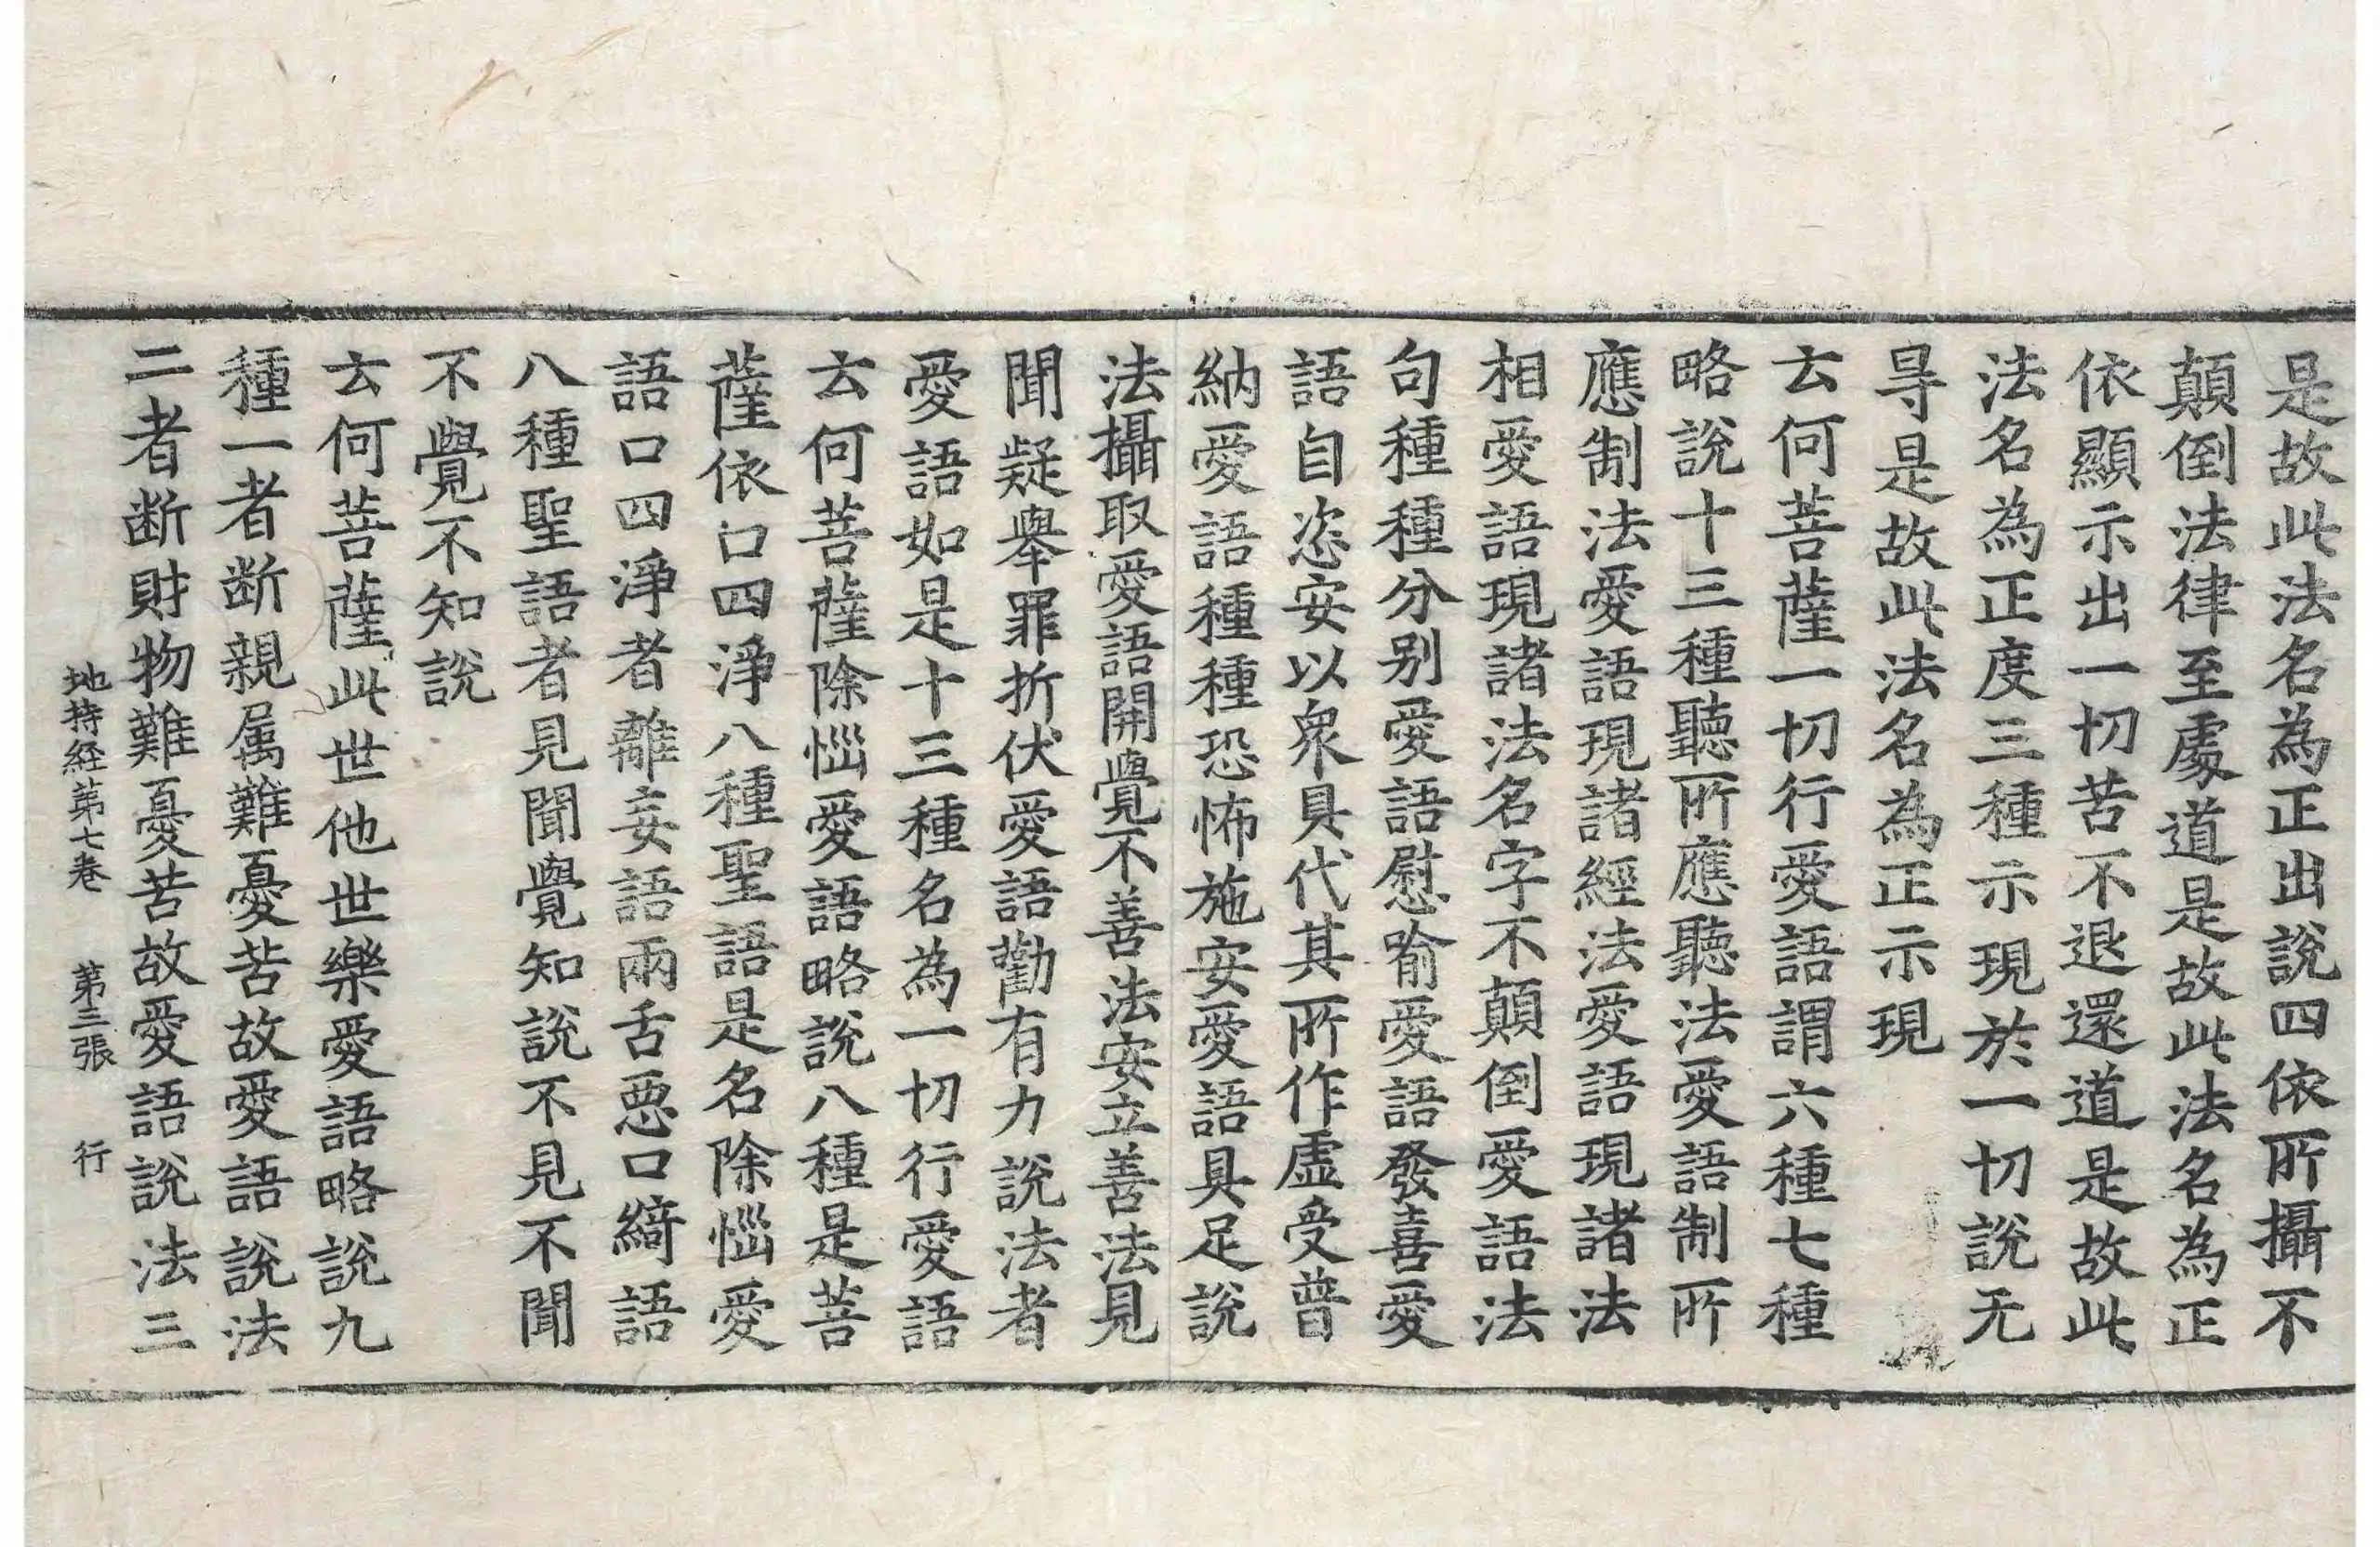 是故此法名為正出說四依所攝不
顛倒法律至處道是故此法名為正
依顯示出一切苦不退還道是故此
法名為正度三種示現於一切說无
㝵是故此法名為正示現
云何菩薩一切行愛語謂六種七種
略說十三種聽所應聽法愛語制所
應制法愛語現諸經法愛語現諸法
相愛語現諸法名字不顛倒愛語法
句種種分别愛語慰喻愛語發喜愛
語自恣安以衆具代其所作虛受普
納愛語種種恐怖施安愛語具足說
法攝取愛語開覺不善法安立善法見
聞疑舉罪折伏愛語勸有力說法者
愛語如是十三種名為一切行愛語
云何菩薩除惱愛語略說八種是菩
薩依口四淨八種聖語是名除惱愛
語口四淨者離妄語兩舌惡口綺語
八種聖語者見聞覺知說不見不聞
不覺不知說
云何菩薩此世他世樂愛語略說九
種一者断親属難憂苦故愛語說法
二者断財物難憂苦故愛語說法三
地持経第七卷 第三張 行